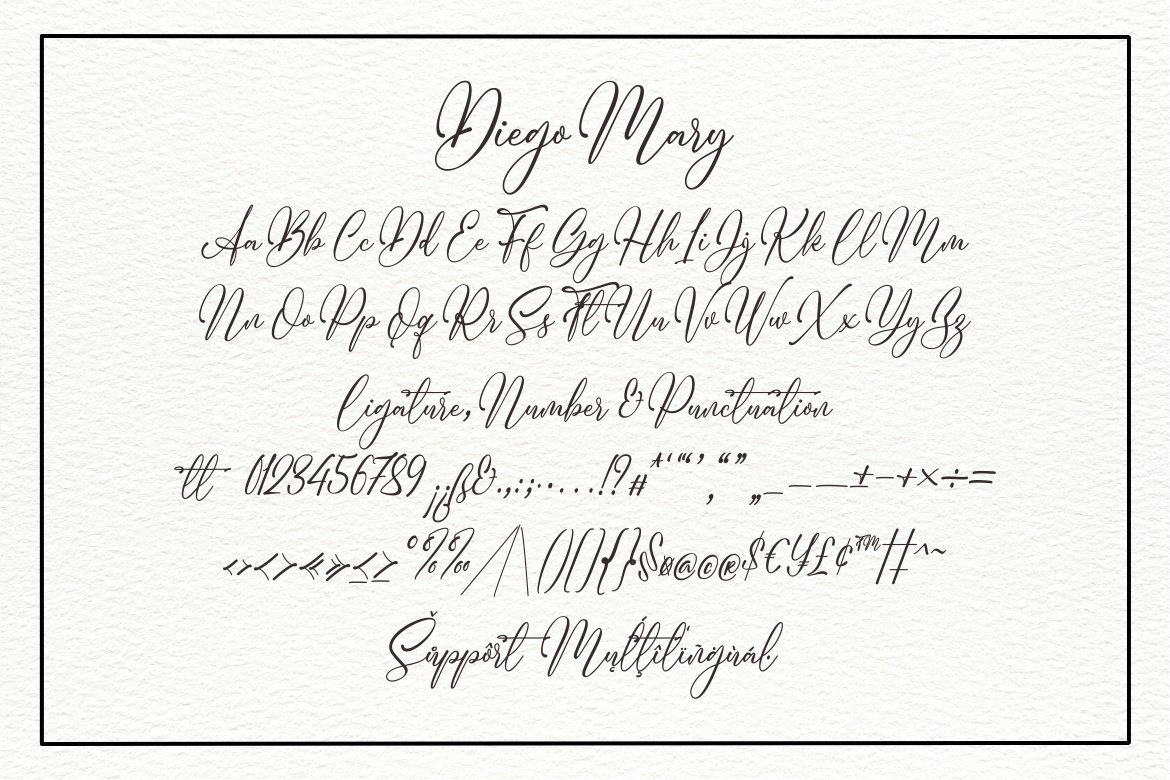 Diego Mary
Aa Bb Cc Dd Ee Ff Gg Hh Ii Jj Kk Ll Mm
Nn Oo Pp Qq Rr Ss Tt Uu Vv Ww Xx Yy Zz
Ligature, Number & Punctuation
tt 0123456789 ¡¿ß&.,:;·•…!?#*‘“‘’,“”„_–—__±−+×÷=
‹›<>«»≤≥°%‰/\()[]{}§¤@©®$€¥£¢™#^~
Šůppôrt Mųltįtîlïñgùàl.